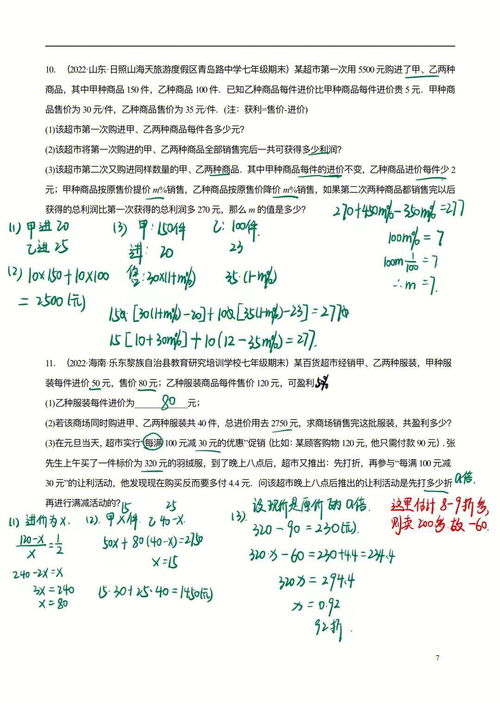 10. （2022·山东·日照山海天旅游度假区青岛路中学七年级期末）某超市第一次用 5500 元购进了甲、乙两种
商品，其中甲种商品 150 件，乙种商品 100 件. 已知乙种商品每件进价比甲种商品每件进价贵 5 元. 甲种商
品售价为 30 元/件，乙种商品售价为 35 元/件.（注：获利=售价-进价）
(1)该超市第一次购进甲、乙两种商品每件各多少元？
(2)该超市将第一次购进的甲、乙两种商品全部销售完后一共可获得多少利润？
(3)该超市第二次又购进同样数量的甲、乙两种商品. 其中甲种商品每件的进价不变，乙种商品进价每件少 2
元；甲种商品按原售价提价 m%销售，乙种商品按原售价降价 m%销售，如果第二次两种商品都销售完以后
获得的总利润比第一次获得的总利润多 270 元，那么 m 的值是多少？
270+450m%-350m%=277
100m%=7
100m 1/100=7
∴m=7.
(1) 甲进20
乙进25
(3) 甲:150件 乙:100件
进: 20 23
售:30(1+m%) 35(1-m%)
(2) 10×150+10×100
=2500(元)
150[30(1+m%)-20]+100[35(1-m%)-23]=2770
15[10+30m%]+10(12-35m%)=277.
11. （2022·海南·乐东黎族自治县教育研究培训学校七年级期末）某百货超市经销甲、乙两种服装，甲种服
装每件进价 50 元，售价 80 元；乙种服装商品每件售价 120 元，可盈利 50%
(1)乙种服装每件进价为 80 元；
(2)若该商场同时购进甲、乙两种服装共 40 件，总进价用去 2750 元，求商场销售完这批服装，共盈利多少？
(3)在元旦当天，超市实行“每满 100 元减 30 元的优惠”促销（比如：某顾客购物 120 元，他只需付款 90 元）. 张
先生上午买了一件标价为 320 元的羽绒服，到了晚上八点后，超市又推出：先打折，再参与“每满 100 元减
30 元”的让利活动，他发现现在购买反而要多付 4.4 元. 问该超市晚上八点后推出的让利活动是先打多少折
再进行满减活动的？
(1) 进价为x.
120-x/x=1/2
240-2x=x
3x=240
x=80
15 25
(2). 甲x件 乙40-x.
50x+80(40-x)=2750
x=15
15·30+25·40=1450(元)
(3). 设现价是原价的x倍.
320-90=230(元)
320·x-60=230+4.4=234.4
320x=294.4
x=0.92
92折.
x倍
这里估计8-9折多,
则卖200多故-60.
7